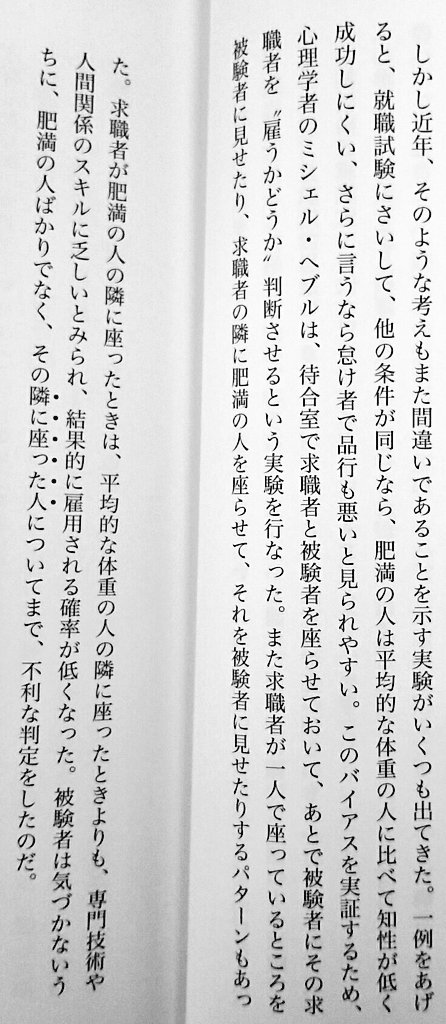 しかし近年、そのような考えもまた間違いであることを示す実験がいくつも出てきた。一例をあげ
ると、就職試験にさいして、他の条件が同じなら、肥満の人は平均的な体重の人に比べて知性が低く
成功しにくい、さらに言うなら怠け者で品行も悪いと見られやすい。このバイアスを実証するため、
心理学者のミシェル・ヘブルは、待合室で求職者と被験者を座らせておいて、あとで被験者にその求
職者を〝雇うかどうか〟判断させるという実験を行なった。また求職者が一人で座っているところを
被験者に見せたり、求職者の隣に肥満の人を座らせて、それを被験者に見せたりするパターンもあっ
た。求職者が肥満の人の隣に座ったときは、平均的な体重の人の隣に座ったときよりも、専門技術や
人間関係のスキルに乏しいとみられ、結果的に雇用される確率が低くなった。被験者は気づかないう
ちに、肥満の人ばかりでなく、その隣に座った人についてまで、不利な判定をしたのだ。